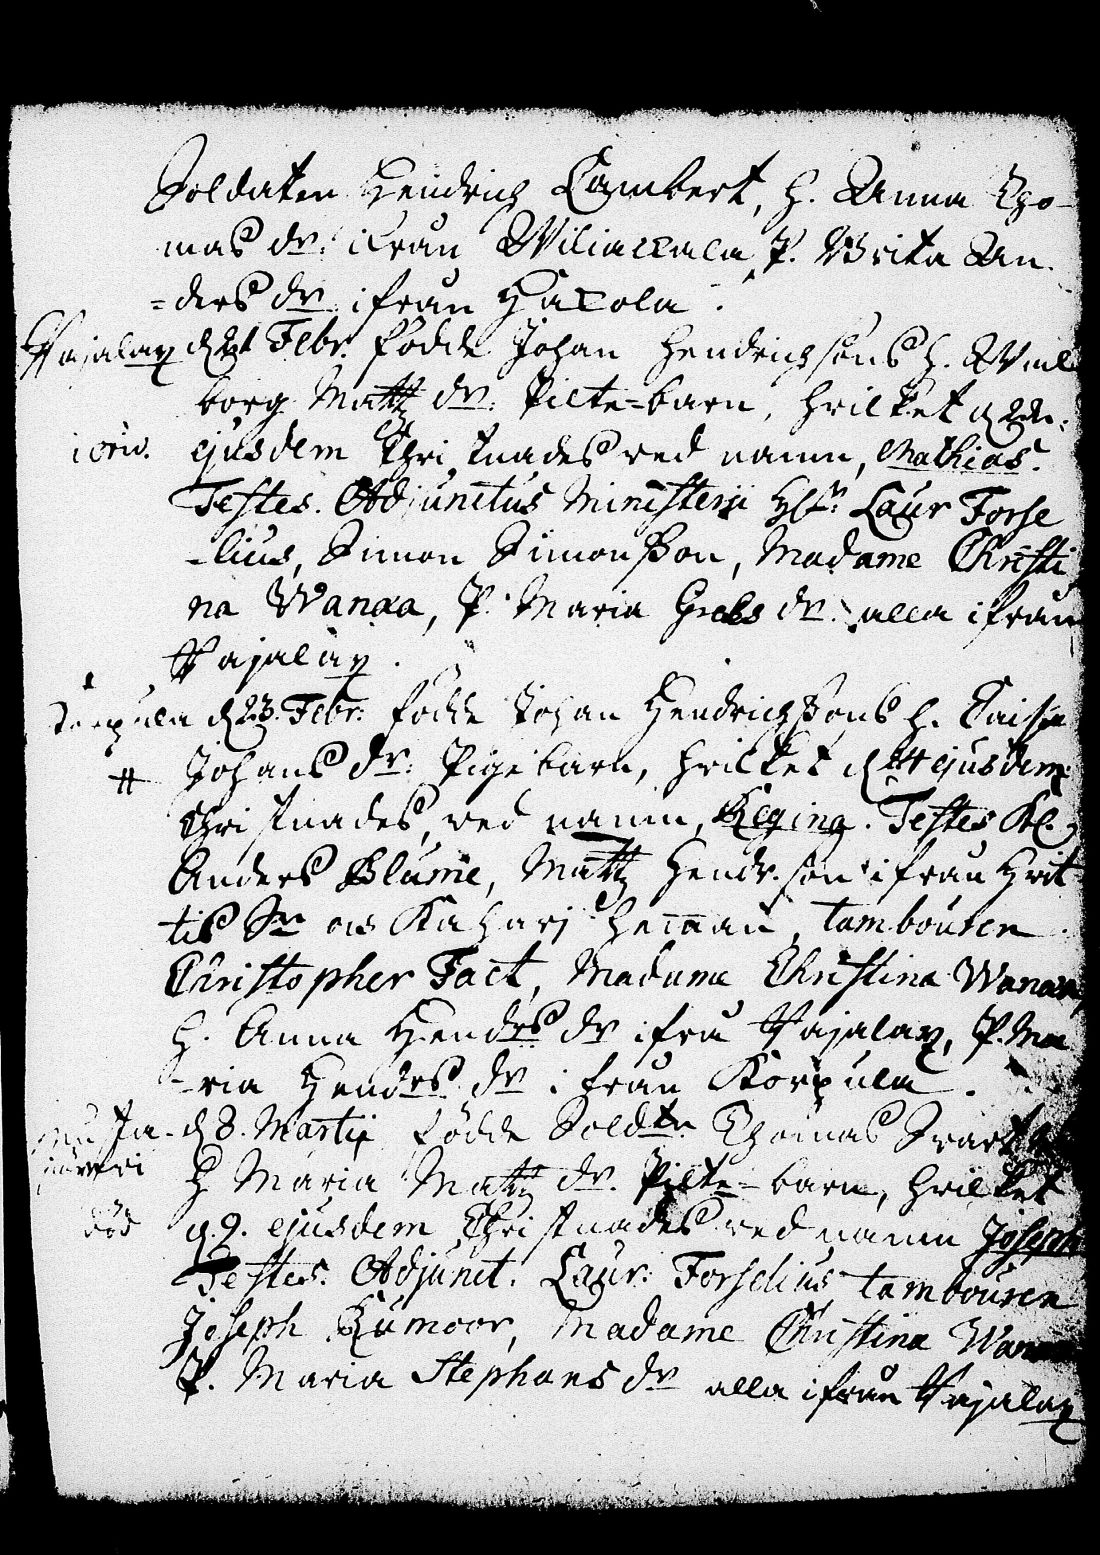 Soldaten Hendrich Lambert, h. Anna Tho-
mas dr: ifrån Wiliackala, P. Brita An-
=ders dr ifrån Hackola.
Pajalax d 21 Febr. födde Johan Hendrichsons h. Wal
borg Matts dr: Pilte=barn, hvilket d 22
ejusdem Christnades ved namn, Mathias.
Testes. Adjunctus Ministerii Hr: Laur Forse
-lius, Simon Simonsson, Madame Christi
na Wanaa, P. Maria Grels dr. alla ifrån
Pajalax.
d 23. Febr: födde Johan Hendrichssons h. Caisa
# Johans dr: Pigebarn, hvilket d 24 ejusdem
Christnades, ved namn, Regina. Testes
Anders Blume, Matts Hendr. son ifrån
tambouren
Christopher Fact, Madame Christina Wanaa,
h. Anna Hendrs dr ifrå Pajalax, P. Ma
-ria Hendrs dr ifrån Korpula.
d 8. Martii födde Soldtn Thomas Svart
h Maria Matts dr. Pilte=barn, hvilket
död d. 9. ejusdem Christnades ved namn Joseph
Testes. Adjunct. Laur: Forselius, tambouren
Joseph Rumoor, Madame Christina Wanaa
P. Maria Stephans dr alla ifrån Pajalax